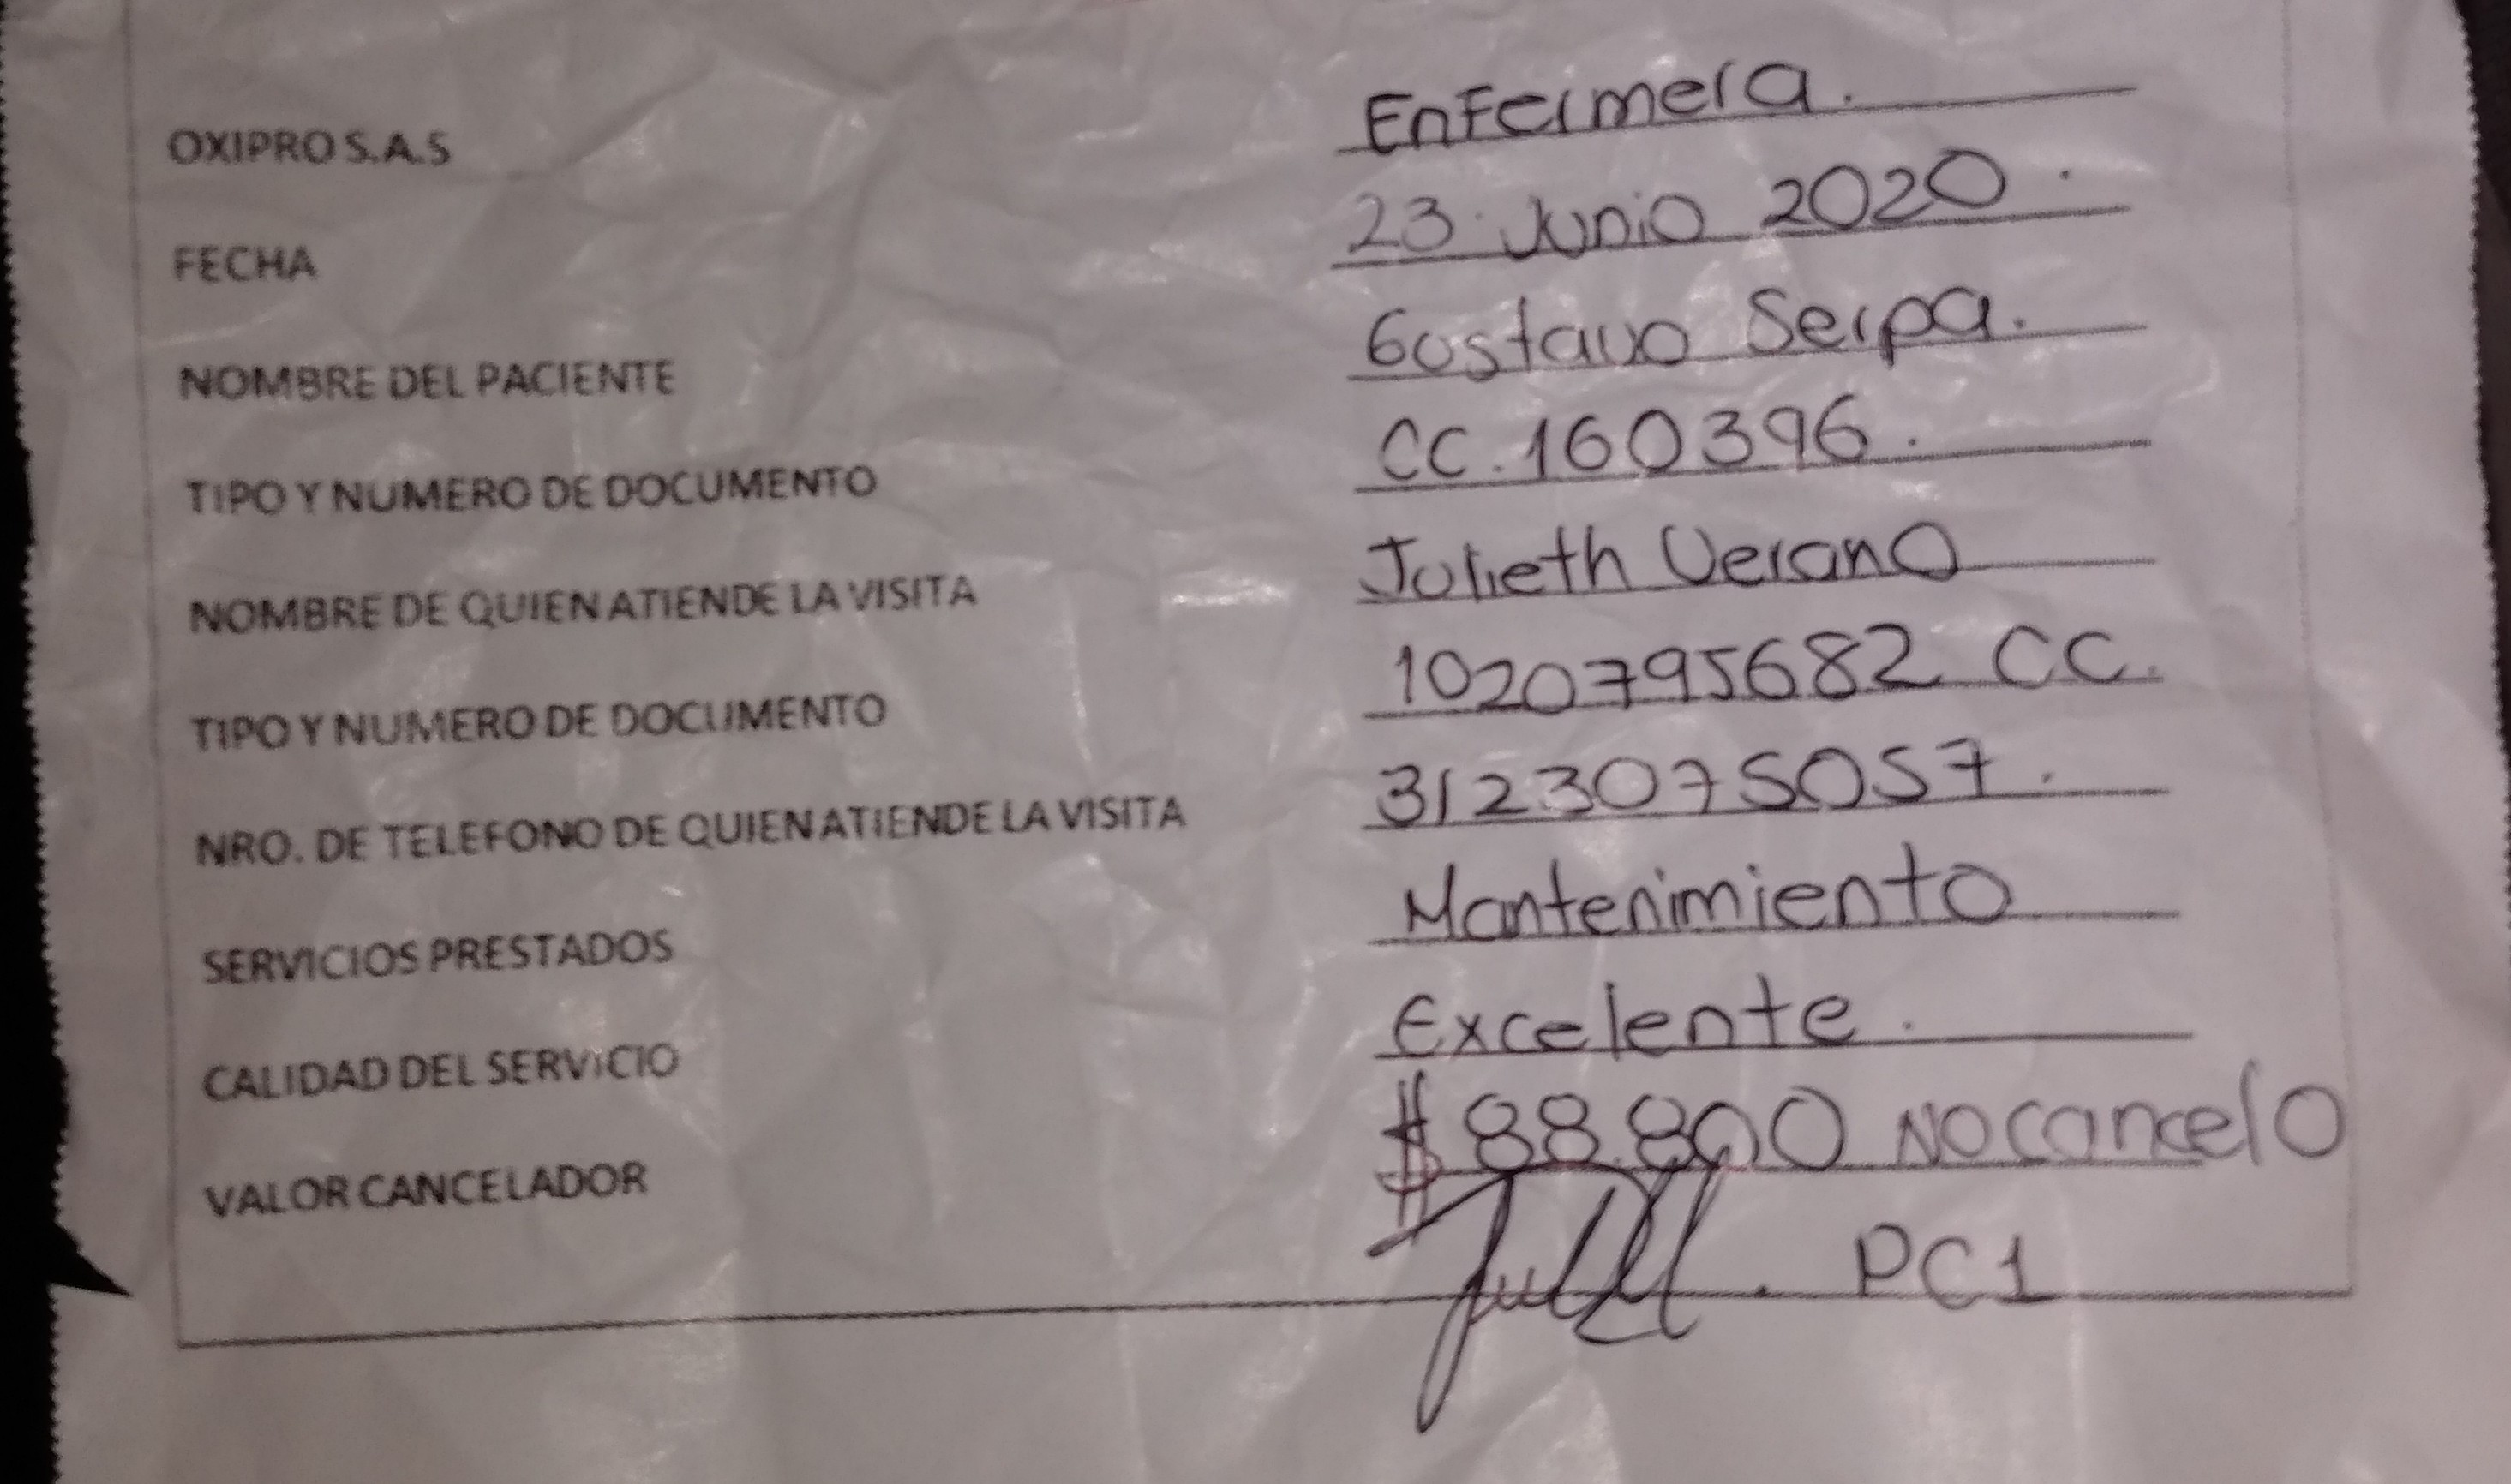 OXIPRO S.A.S Enfermera.
FECHA 23 Junio 2020.
NOMBRE DEL PACIENTE Gustavo Serpa.
TIPO Y NUMERO DE DOCUMENTO CC. 160396.
NOMBRE DE QUIEN ATIENDE LA VISITA Julieth Verano
TIPO Y NUMERO DE DOCUMENTO 1020795682 CC.
NRO. DE TELEFONO DE QUIEN ATIENDE LA VISITA 3123075057.
SERVICIOS PRESTADOS Mantenimiento
CALIDAD DEL SERVICIO Excelente.
VALOR CANCELADOR $88.800 NO cancelo
PC1